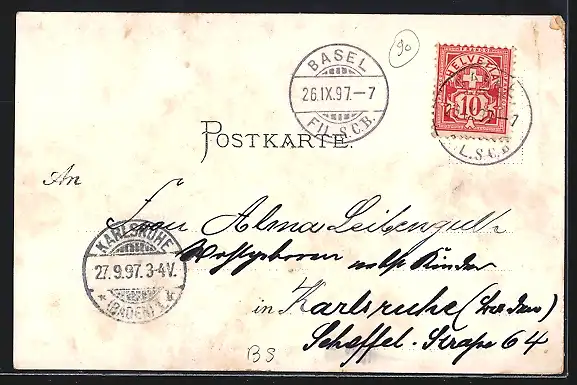 90
BASEL
26.IX.97.–7
FIL. S.C.B.
HELVETIA
10
L. S.C.B.
POSTKARTE.
An
Frau Alma
Wohlgeboren nebst Kinder
in Karlsruhe (Baden)
Scheffel-Straße 64
KARLSRUHE
27.9.97.3-4V.
* (BADEN) 1 *
BS